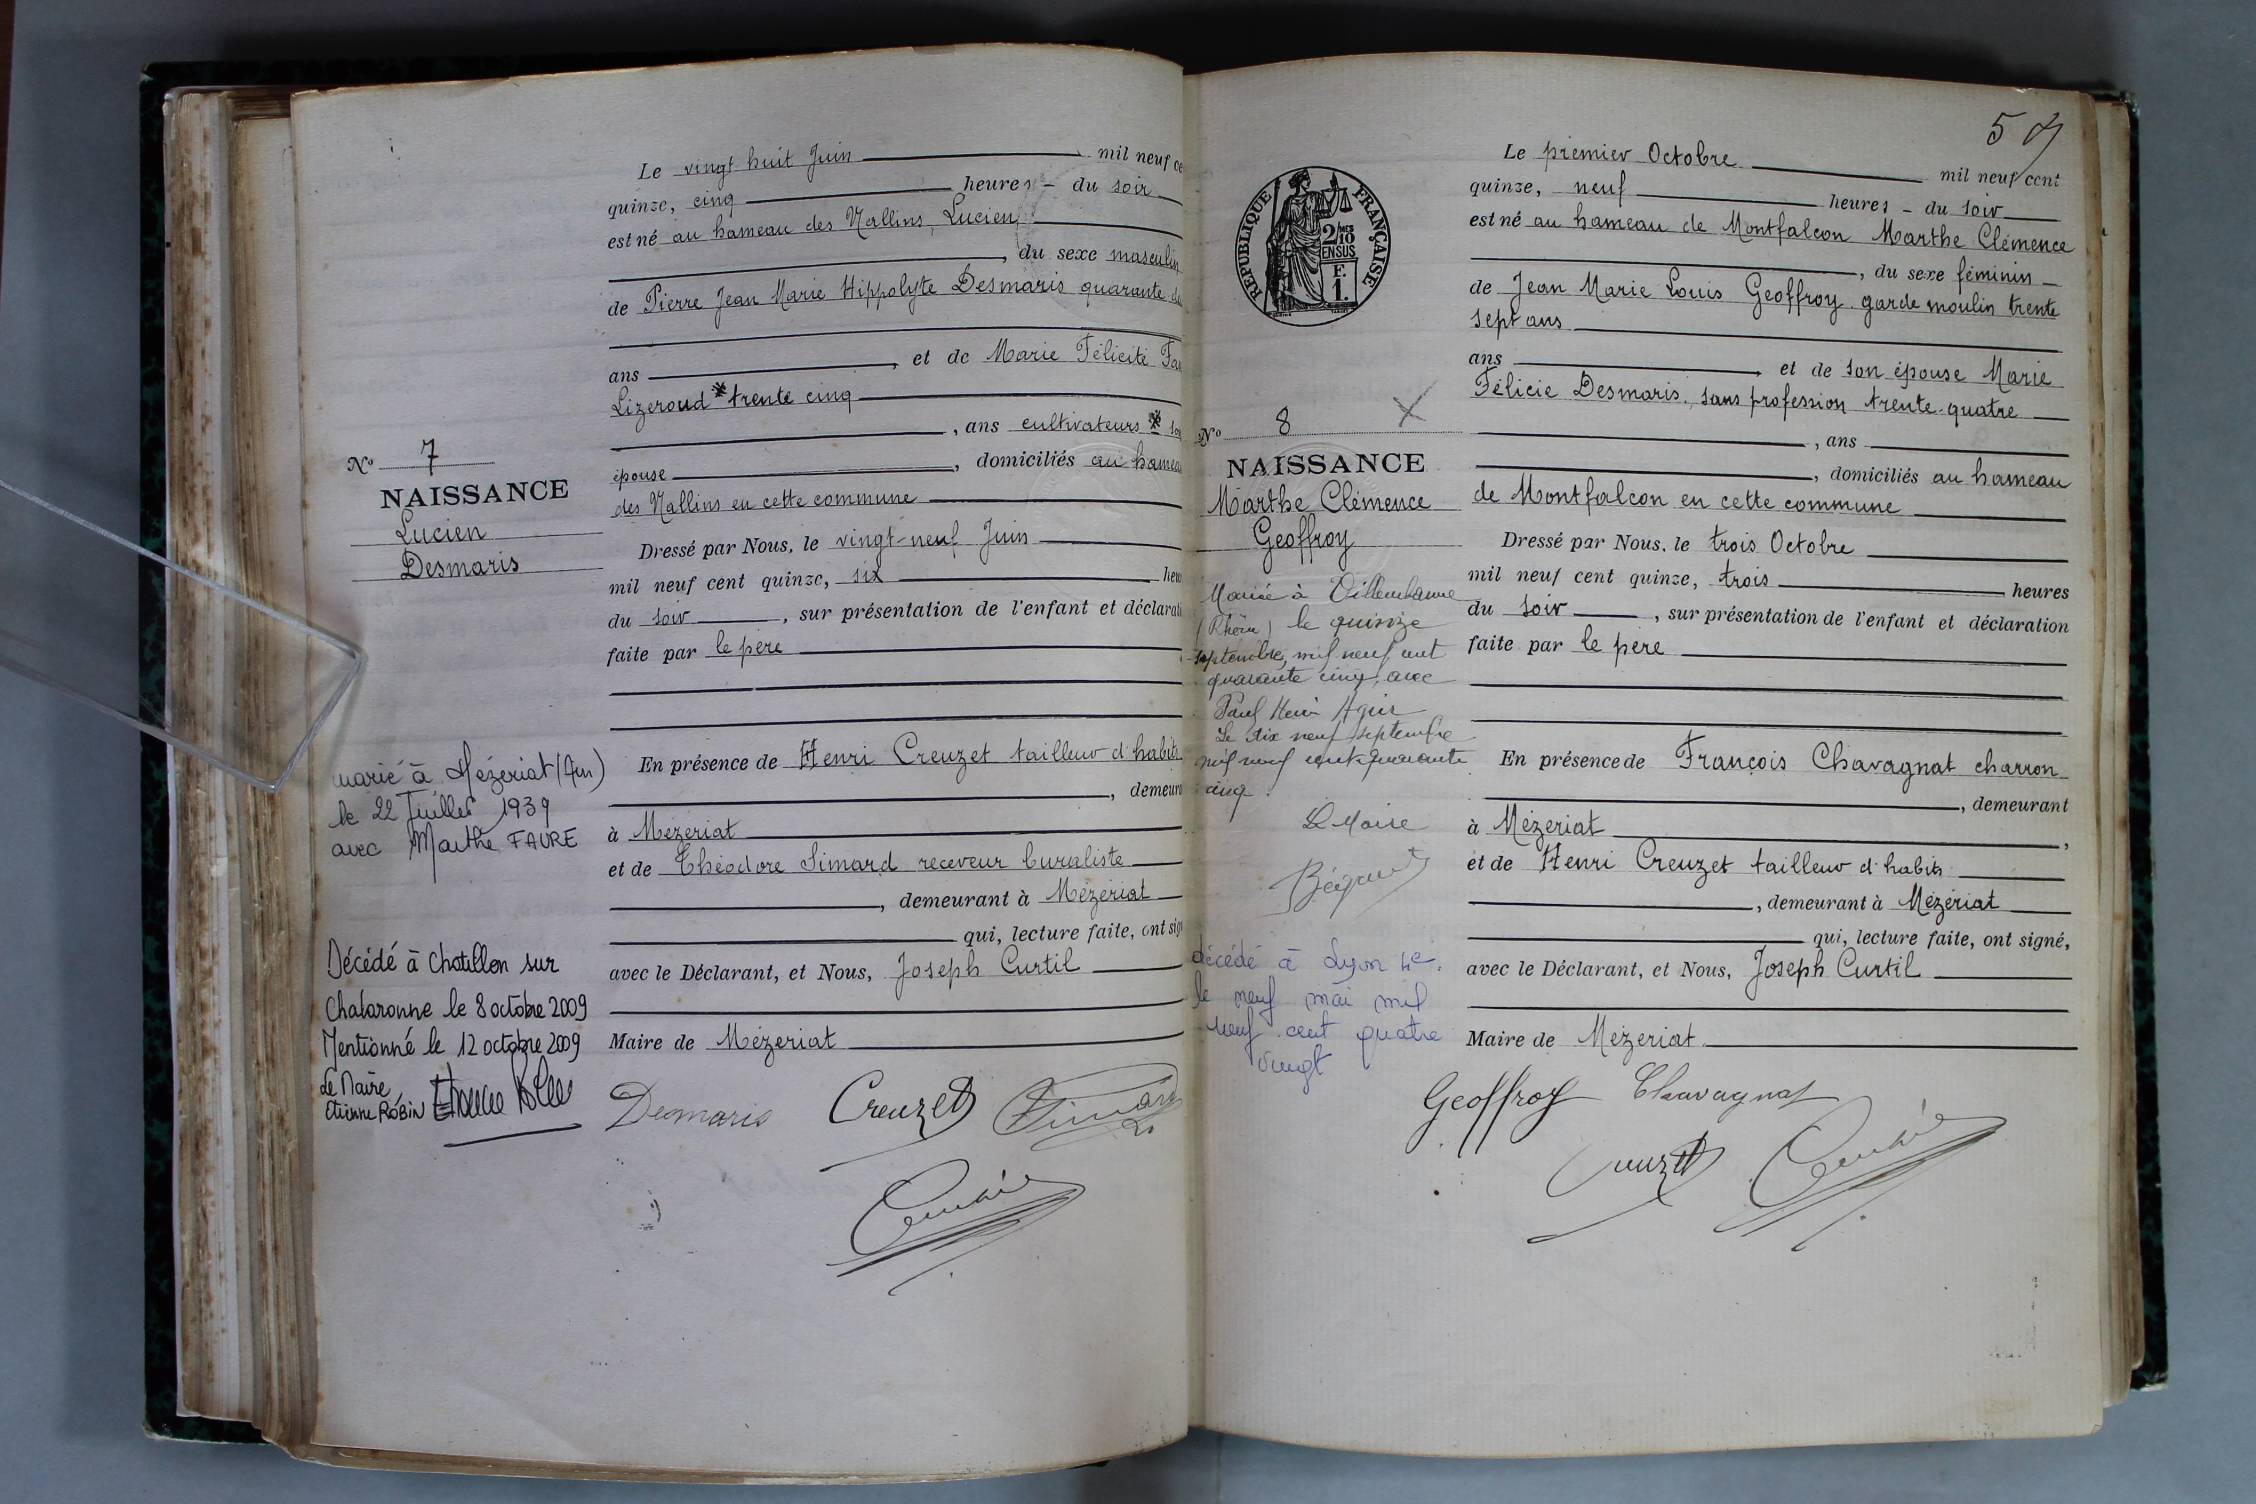 Le vingt huit Juin mil neuf ce
quinze, cinq heures du soir
est né au hameau des Nallins, Lucien
, du sexe masculin
de Pierre Jean Marie Hippolyte Desmaris quarante
ans , et de Marie Félicité
Lizeroud * trente cinq
, ans cultivateurs *
épouse , domiciliés au hameau
des Nallins en cette commune
Nº 7
NAISSANCE
Lucien
Desmaris
Dressé par Nous, le vingt-neuf Juin
mil neuf cent quinze, six heu
du soir , sur présentation de l'enfant et déclarati
faite par le père
En présence de Henri Creuzet tailleur d'habits
, demeura
à Mézériat
et de Théodore Simard receveur buraliste
, demeurant à Mézériat
qui, lecture faite, ont sign
avec le Déclarant, et Nous, Joseph Curtil
Maire de Mézériat
marié à Mézeriat (Ain)
le 22 Juillet 1939
avec Marthe FAVRE
Décédé à Chatillon sur
Chalaronne le 8 octobre 2009
Mentionné le 12 octobre 2009
Le Maire,
Etienne ROBIN
Desmaris Creuzet Simard
58
Le premier Octobre mil neuf cent
quinze, neuf heures du soir
est né au hameau de Montfalcon Marthe Clémence
, du sexe féminin
de Jean Marie Louis Geoffroy garde moulin trente
sept ans
ans , et de son épouse Marie
Félicie Desmaris, sans profession trente-quatre
, ans
, domiciliés au hameau
de Montfalcon en cette commune
RÉPUBLIQUE FRANÇAISE
2/10
EN SUS
F.
1.
Nº 8
NAISSANCE
Marthe Clémence
Geoffroy
Dressé par Nous, le trois Octobre
mil neuf cent quinze, trois heures
du soir , sur présentation de l'enfant et déclaration
faite par le père
En présence de François Chavagnat charron
, demeurant
à Mézériat ,
et de Henri Creuzet tailleur d'habits
, demeurant à Mézériat
qui, lecture faite, ont signé,
avec le Déclarant, et Nous, Joseph Curtil
Maire de Mézériat
Mariée à Villeurbanne
(Rhône) le quinze
septembre mil neuf cent
quarante cinq, avec
Paul Henri
Le dix neuf septembre
mil neuf cent quarante
cinq.
Le Maire
décédé à Lyon 4e.
le neuf mai mil
neuf cent quatre
vingt
Geoffroy Chavagnat
Creuzet